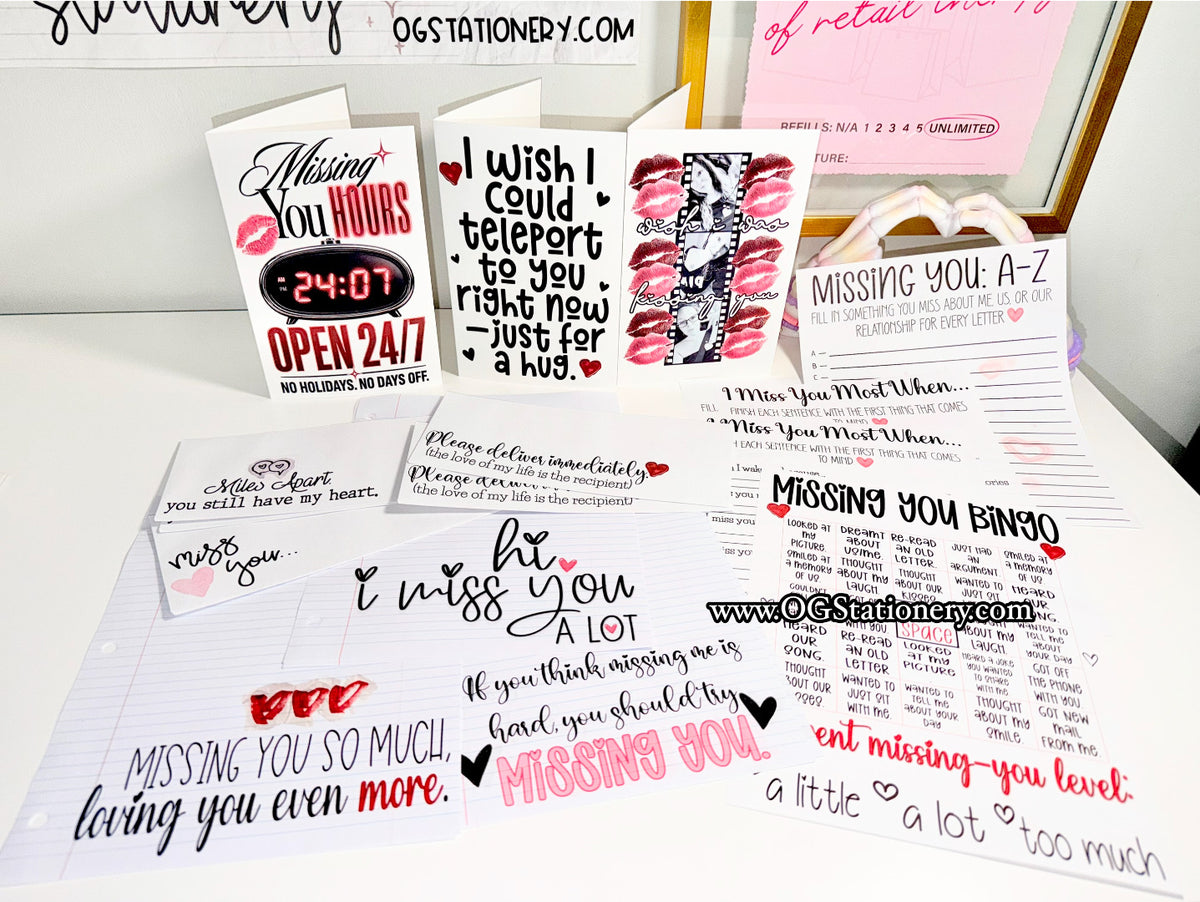 stationery
OGSTATIONERY.COM
of retail therapy
REFILLS: N/A 1 2 3 4 5 UNLIMITED
Missing
You HOURS
AM
PM
24:07
OPEN 24/7
NO HOLIDAYS. NO DAYS OFF.
I wish I
could
teleport
to you
right now
—just for
a hug.
wish i was
kissing you
MISSING YOU: A-Z
FILL IN SOMETHING YOU MISS ABOUT ME, US, OR OUR
RELATIONSHIP FOR EVERY LETTER
A –
B –
C –
I Miss You Most When...
FINISH EACH SENTENCE WITH THE FIRST THING THAT COMES
TO MIND
I Miss You Most When...
EACH SENTENCE WITH THE FIRST THING THAT COMES
TO MIND
Please deliver immediately.
(the love of my life is the recipient)
Please
(the love of my life is the recipient)
Miles Apart,
you still have my heart.
miss
you...
hi
i miss you
A LOT
MISSING YOU SO MUCH,
loving you even more.
If you think missing me is
hard, you should try
MISSING YOU.
MISSING YOU BINGO
LOOKED AT MY PICTURE.
DREAMT ABOUT US/ME.
RE-READ AN OLD LETTER.
JUST HAD AN ARGUMENT.
SMILED AT A MEMORY OF US
SMILED AT A MEMORY OF US.
THOUGHT ABOUT MY
THOUGHT ABOUT OUR KISSES
WANTED TO JUST SIT
HEARD OUR SONG.
www.OGStationery.com
HEARD OUR SONG.
WITH YOU
SPACE
ABOUT MY LAUGH.
WANTED TO TELL ME ABOUT YOUR DAY
RE-READ AN OLD LETTER
LOOKED AT MY PICTURE
HEARD A JOKE YOU WANTED TO SHARE WITH ME.
GOT OFF THE PHONE WITH YOU
THOUGHT
WANTED TO JUST SIT WITH ME.
WANTED TO TELL ME ABOUT YOUR DAY
THOUGHT ABOUT MY SMILE.
GOT NEW MAIL FROM ME
missing-you level:
a little a lot too much